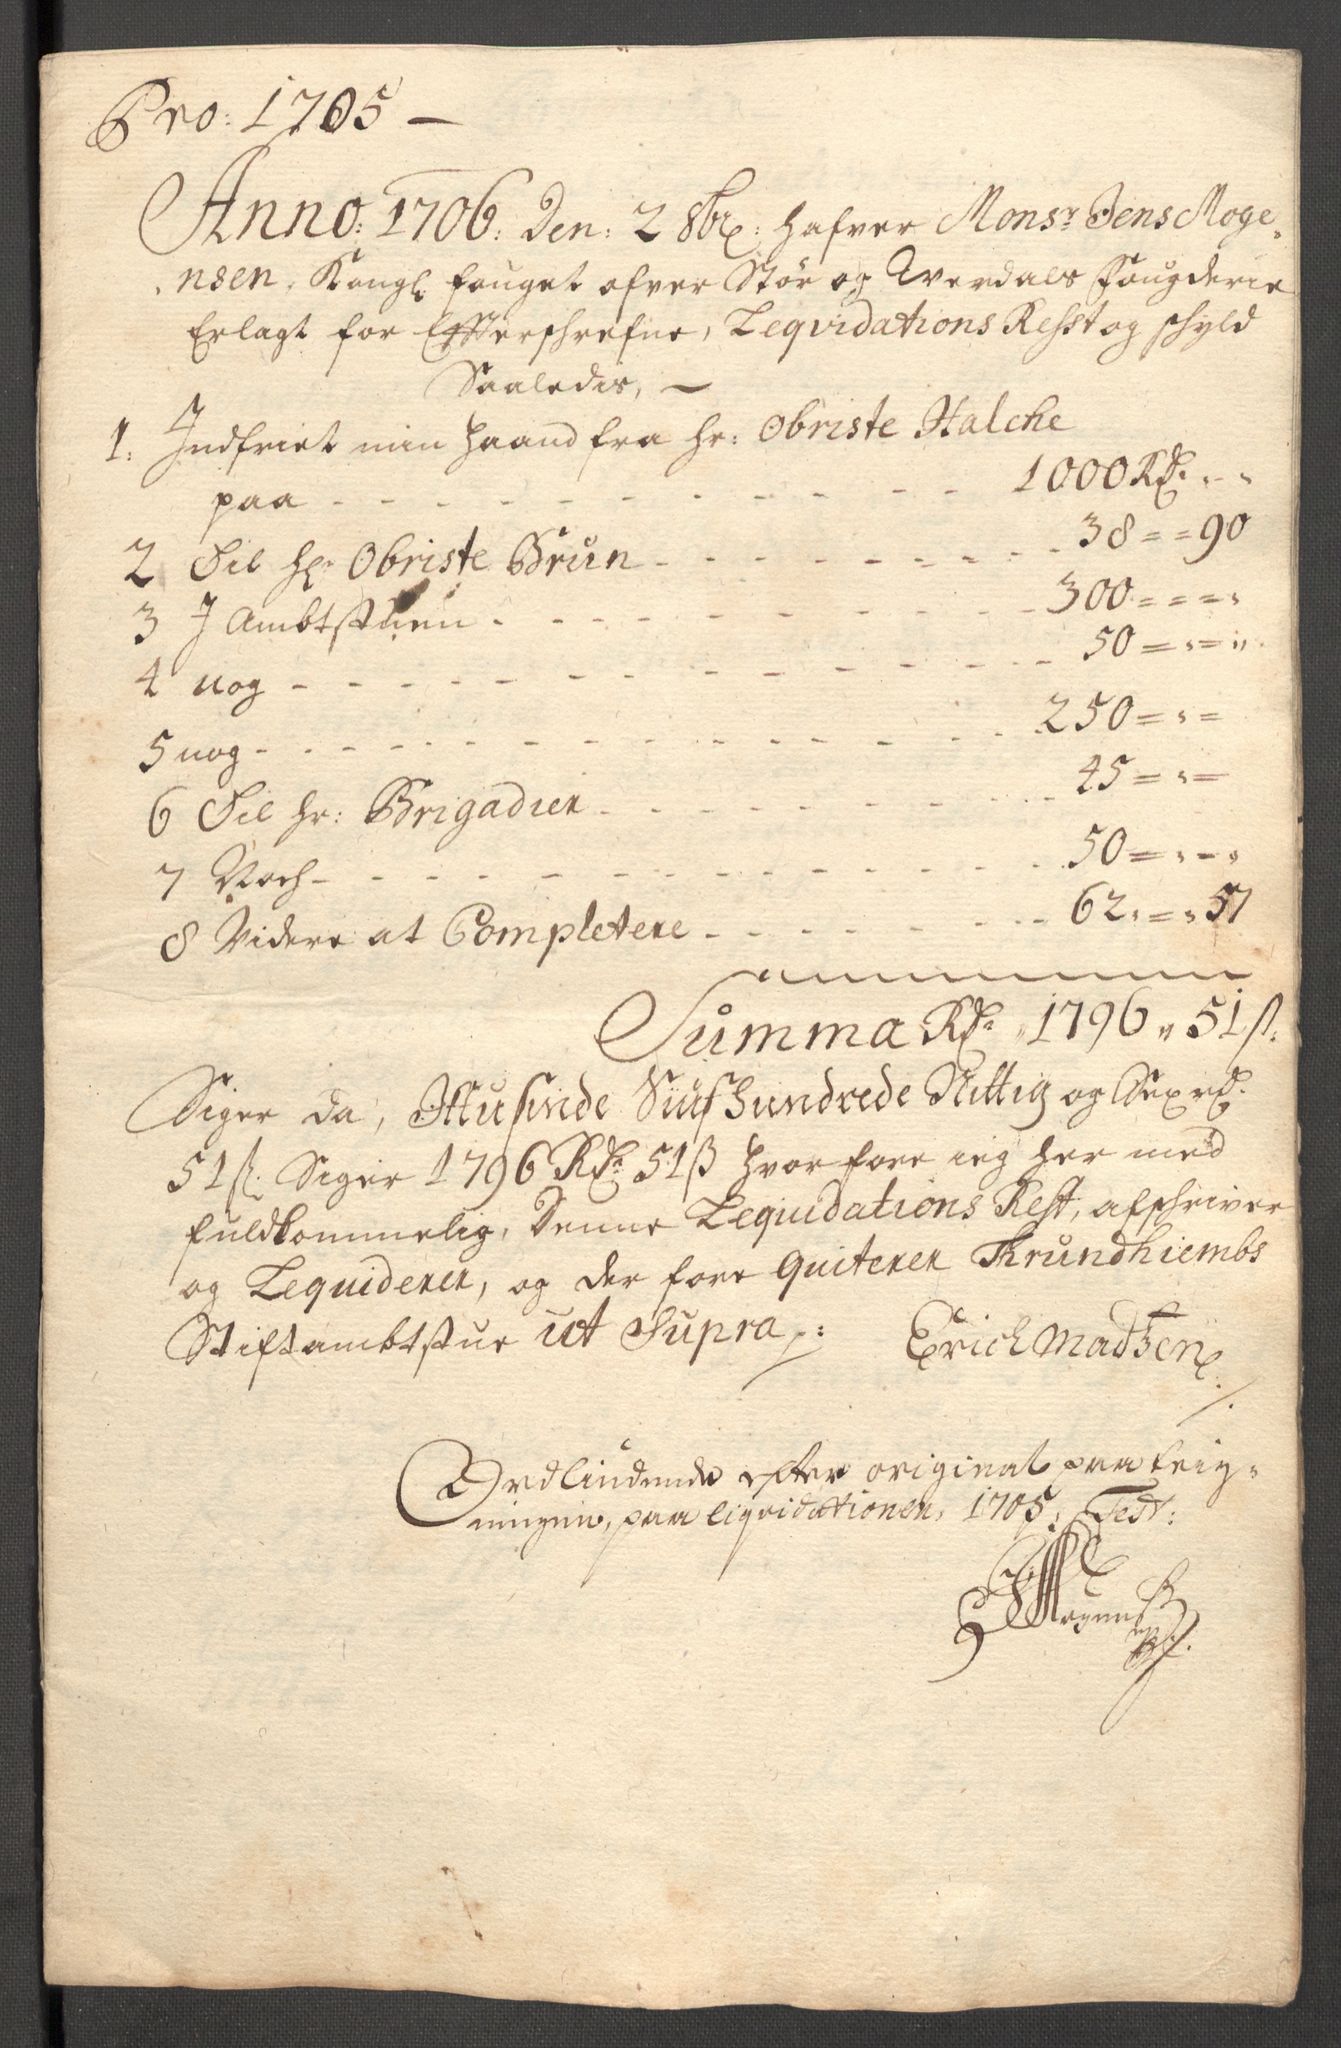 Pro: 1705 —
Anno: 1706: Den: 2 8br: hafver Monsr: Jens Moge-
nsen, Kongl: fouget ofver Stør og Werdals Fougderie
Erlagt for Effterschrefne, Leqvidations Resst og schyld
Saaledis, —
1. Indfriet min haand fra hr: Obriste Halche
paa - - - 1000 Rd: - -
2 Til hr: Obriste Brun - - - 38 = = 90
3 J Ambtstuen - - - 300 = = = =
4 nog - - - 50 = = =
5 nog - - - 250 = = =
6 Til hr: Brigadier - - - 45 = = =
7 Noch - - - 50 = = - -
8 Videre at Completere - - - 62 = = 57
Summa Rd: 1796 „ 51 ß.
Siger da, Ittusinde Siufhundrede Nittig og Sex rd.
51 ß. Siger 1796 Rd: 51 ß hvor fore ieg her med
fuldkommelig, Denne Lequidations Rest, afschriver
og Lequiderer, og der fore quiterer Thrundhiembs
Stiftambtstue ut Supra /:
Erich Madtzen
Ordliudende efter original paa teig-
ningen, paa liqvidationen, 1705, Test: